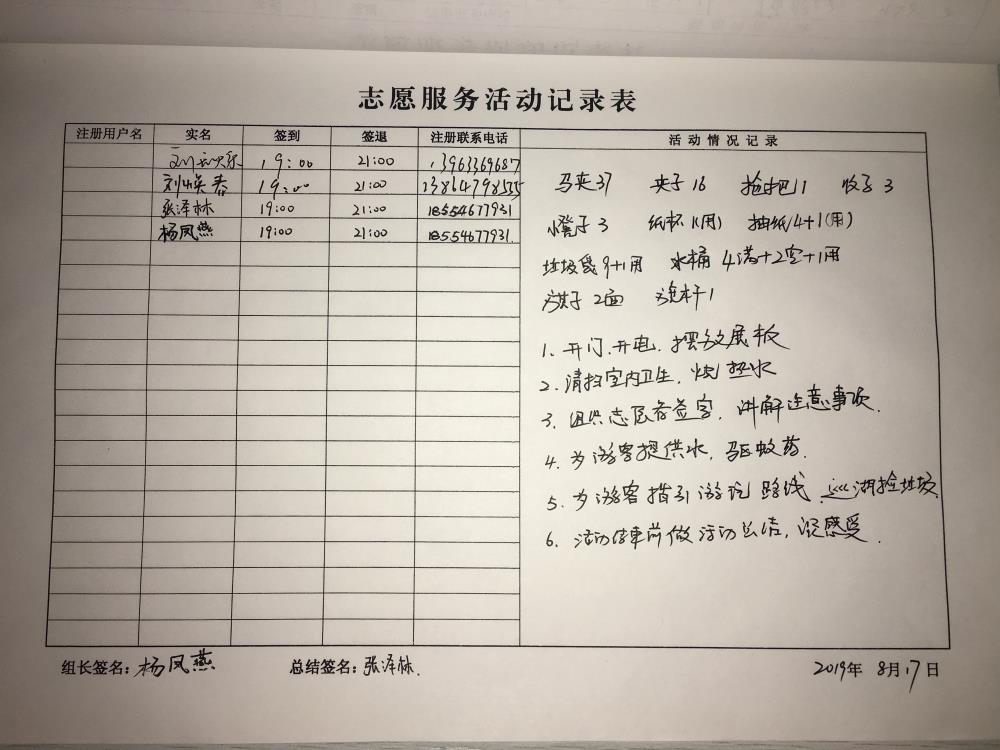 志愿服务活动记录表
注册用户名 实名 签到 签退 注册联系电话 活动情况记录
刘 19:00 21:00 13963369687
刘焕春 19:00 21:00 13864798535
张泽林 19:00 21:00 18554677931
杨凤燕 19:00 21:00 18554677931.
马夹37 夹子16 拖把11 3
小凳子3 纸杯1(用) 抽纸14+1(用)
垃圾袋9+1用 水桶 4满+2空+1用
旗子2面 旗杆1
1. 开门、开电、摆放展板
2. 清扫室内卫生，烧热水
3. 组织志愿者签字，讲解注意事项.
4. 为游客提供水，驱蚊药.
5. 为游客指引游玩路线 巡湖捡垃圾.
6. 活动结束前做活动总结，谈感受.
组长签名：杨凤燕 总结签名：张泽林. 2019年 8月17日